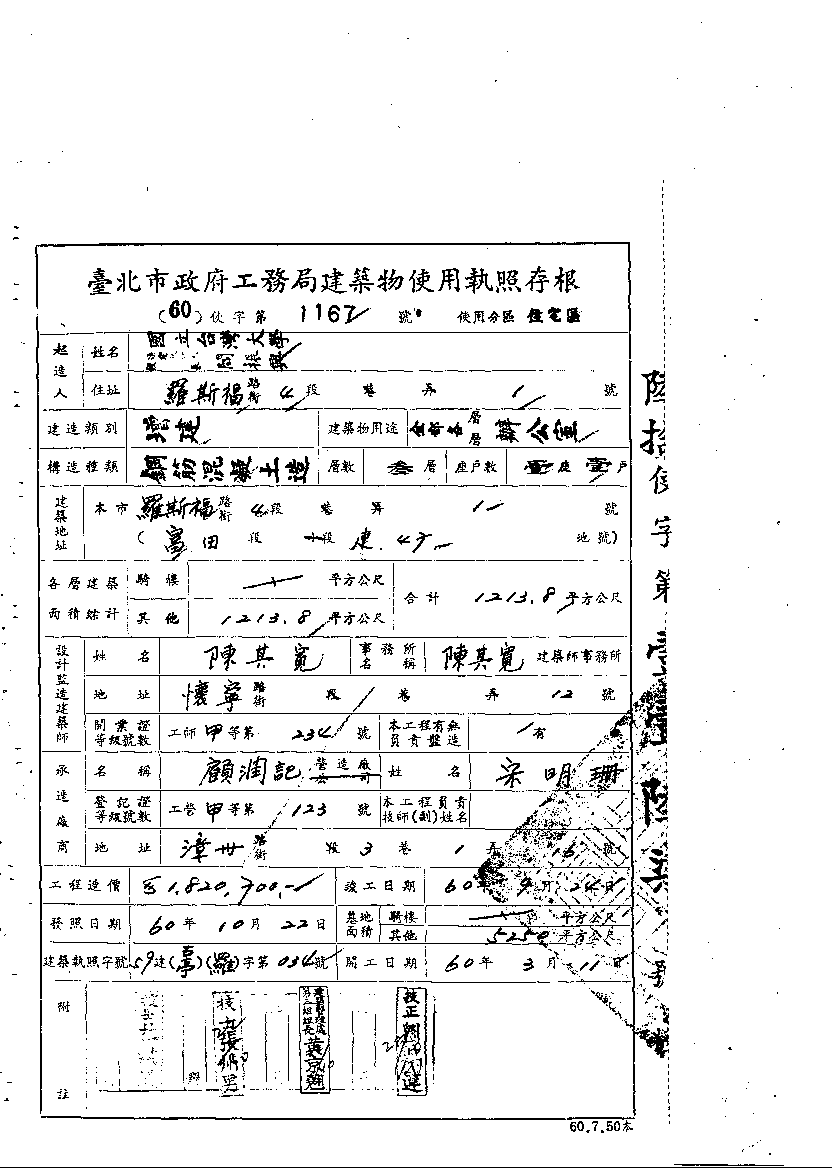 臺北市政府工務局建築物使用執照存根
(60)使字第 1167 號 使用分區 住宅區
起造人 姓名 國立台灣大學 閻振興
住址 羅斯福路街 4段 巷 弄 1 號
建造類別 增建 建築物用途 全部各層層 辦公室
構造種類 鋼筋混凝土造 層數 層 座戶數 座 戶
建築地址 本市 羅斯福路街 4段 巷 弄 1 號
(富田 段 段 建 47 地號)
各層建築面積綜計 騎樓 平方公尺 合計 1213.8 平方公尺
其他 1213.8 平方公尺
設計監造建築師 姓名 陳其寬 事務所名稱 陳其寬 建築師事務所
地址 懷寧路街 段 巷 弄 12 號
開業證等級號數 工師甲等第 234 號 本工程有無負責監造 有
承造廠商 名稱 顧潤記 營造廠公司 姓名 宋明珊
登記證等級號數 工營甲等第 123 號 本工程負責技師(副)姓名
地址 漳州路街 段 3 巷 1 弄 16 號
工程造價 1,820,700.- 竣工日期 60年 9月 24日
發照日期 60年 10月 22日 基地面積 騎樓 平方公尺
其他 5250 平方公尺
建築執照字號 59建( )(羅)字第 034 號 開工日期 60年 3月 11日
附註
60.7.50本
陸拾使字第 號